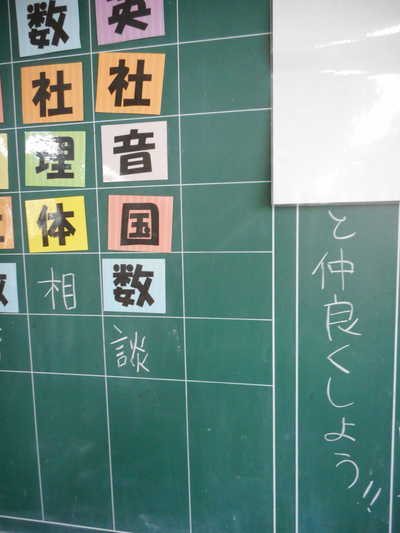 と仲良くしよう!!
英社音国数談
数社理体相